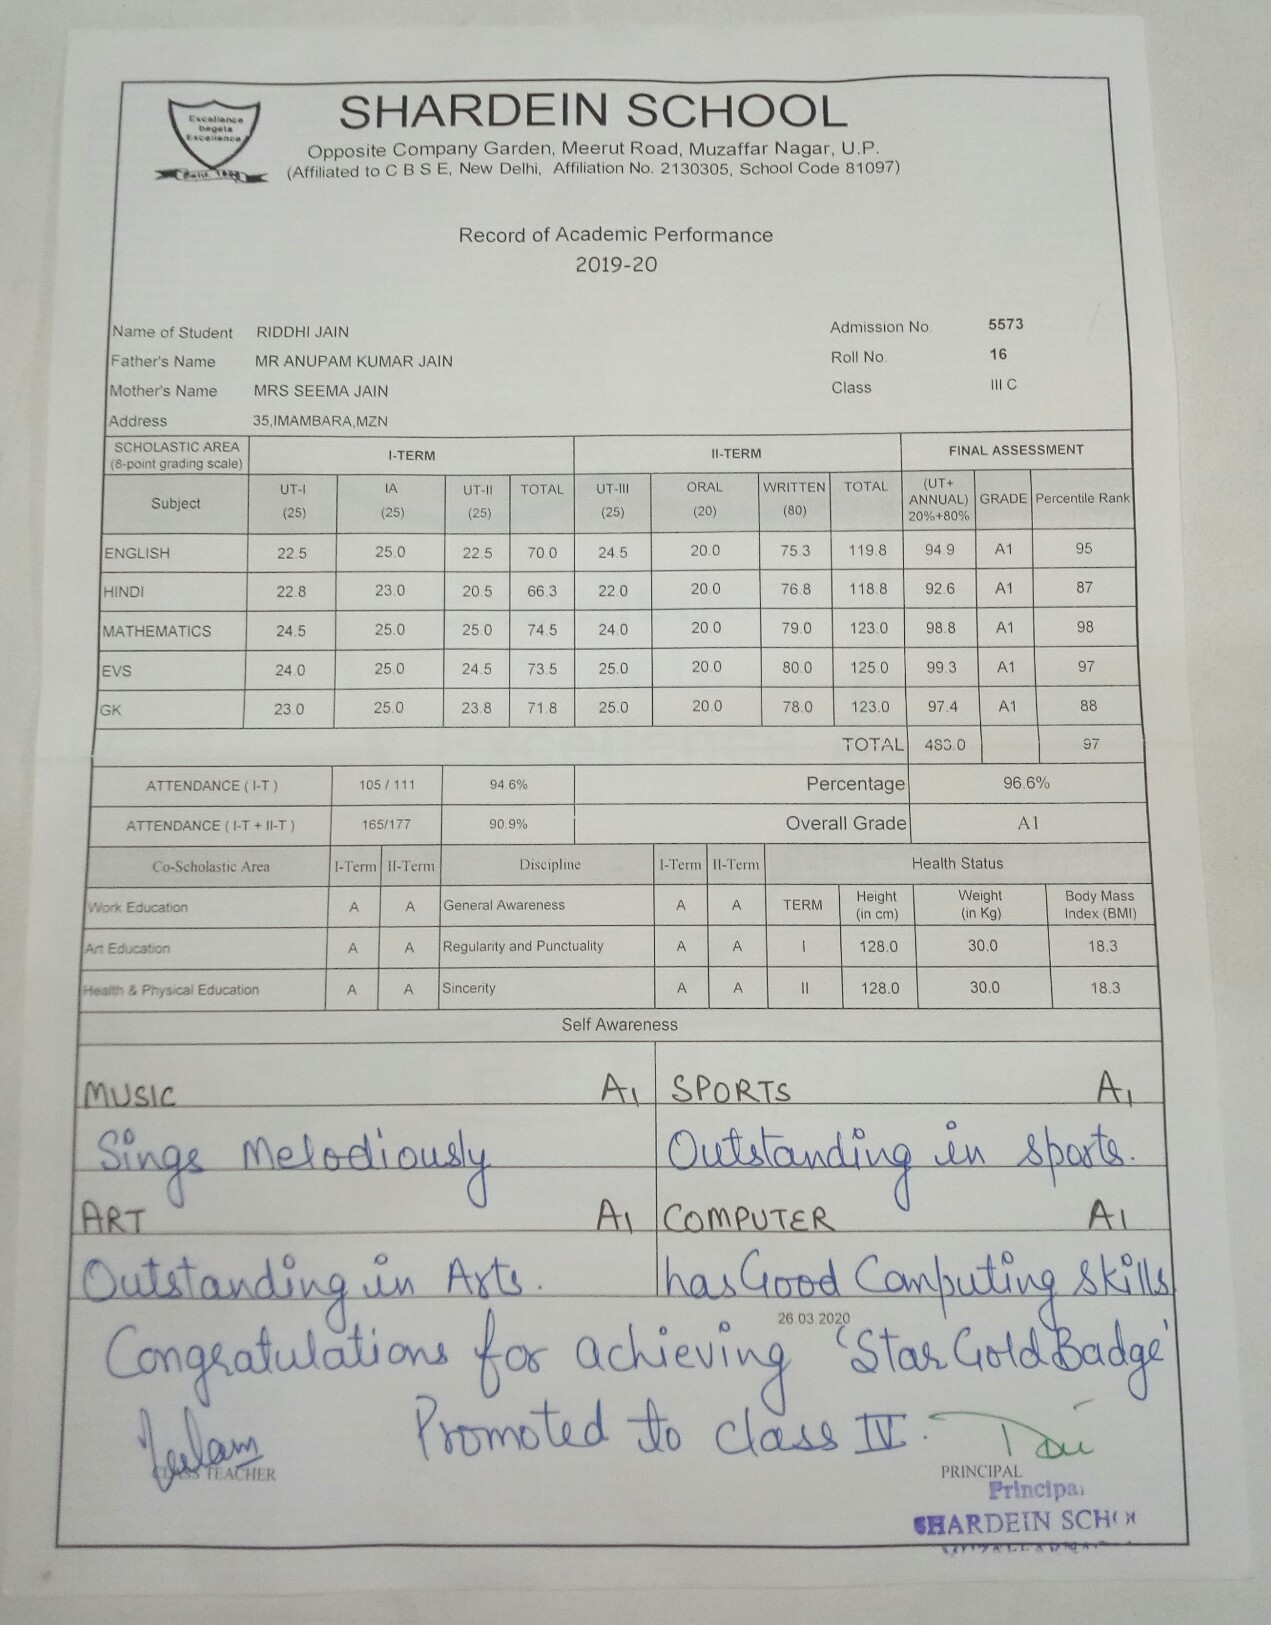 Excellence
begets
Excellence
SHARDEIN SCHOOL
Opposite Company Garden, Meerut Road, Muzaffar Nagar, U.P.
(Affiliated to C B S E, New Delhi, Affiliation No. 2130305, School Code 81097)
Record of Academic Performance
2019-20
Name of Student RIDDHI JAIN Admission No. 5573
Father's Name MR ANUPAM KUMAR JAIN Roll No. 16
Mother's Name MRS SEEMA JAIN Class III C
Address 35,IMAMBARA,MZN
SCHOLASTIC AREA (8-point grading scale) I-TERM II-TERM FINAL ASSESSMENT
Subject UT-I (25) IA (25) UT-II (25) TOTAL UT-III (25) ORAL (20) WRITTEN (80) TOTAL (UT+ ANNUAL) 20%+80% GRADE Percentile Rank
ENGLISH 22.5 25.0 22.5 70.0 24.5 20.0 75.3 119.8 94.9 A1 95
HINDI 22.8 23.0 20.5 66.3 22.0 20.0 76.8 118.8 92.6 A1 87
MATHEMATICS 24.5 25.0 25.0 74.5 24.0 20.0 79.0 123.0 98.8 A1 98
EVS 24.0 25.0 24.5 73.5 25.0 20.0 80.0 125.0 99.3 A1 97
GK 23.0 25.0 23.8 71.8 25.0 20.0 78.0 123.0 97.4 A1 88
TOTAL 483.0 97
ATTENDANCE ( I-T ) 105 / 111 94.6% Percentage 96.6%
ATTENDANCE ( I-T + II-T ) 165/177 90.9% Overall Grade A1
Co-Scholastic Area I-Term II-Term Discipline I-Term II-Term Health Status
Work Education A A General Awareness A A TERM Height (in cm) Weight (in Kg) Body Mass Index (BMI)
Art Education A A Regularity and Punctuality A A I 128.0 30.0 18.3
Health & Physical Education A A Sincerity A A II 128.0 30.0 18.3
Self Awareness
MUSIC A1 SPORTS A1
Sings Melodiously Outstanding in sports.
ART A1 COMPUTER A1
Outstanding in Arts. has Good Computing skills
26.03.2020
Congratulations for achieving 'Star Gold Badge'
Promoted to class IV.
CLASS TEACHER PRINCIPAL
Principal
SHARDEIN SCHOOL